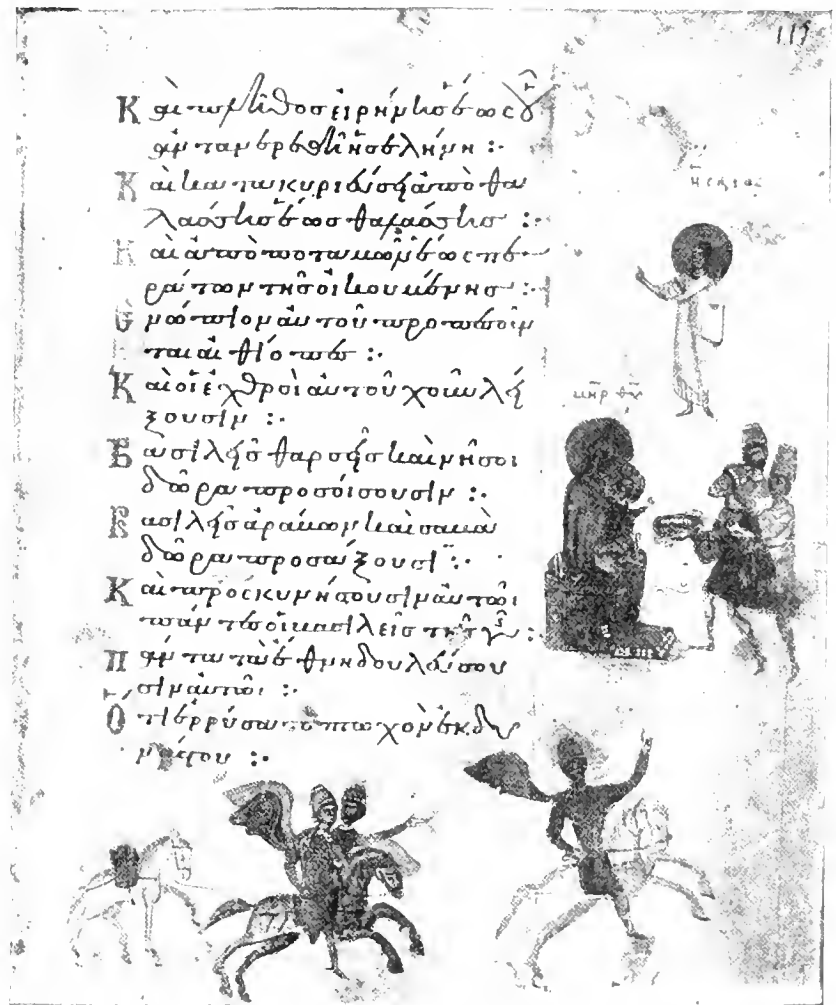 115
Καὶ πλῆθος εἰρήνης ἕως οὗ
ἀνταναιρεθῇ ἡ σελήνη :·
Καὶ κατακυριεύσει ἀπὸ θα
λάσσης ἕως θαλάσσης :·
Καὶ ἀπὸ ποταμῶν ἕως πε
ράτων τῆς οἰκουμένης :·
Ἐνώπιον αὐτοῦ προπεσοῦν
ται αἰθίοπες :·
Καὶ οἱ ἐχθροὶ αὐτοῦ χοῦν λεί
ξουσιν :·
Βασιλεῖς θαρσεῖς καὶ νῆσοι
δῶρα προσοίσουσιν :·
Βασιλεῖς ἀράβων καὶ σαβὰ
δῶρα προσάξουσι :·
Καὶ προσκυνήσουσιν αὐτῶι
πάντες οἱ βασιλεῖς τῆς γῆς :
Πάντα τὰ ἔθνη δουλεύσου
σιν αὐτῶι :·
Ὅτι ἐρρύσατο πτωχὸν ἐκ δυ
νάστου :·
ΜΗΡ ΘΥ